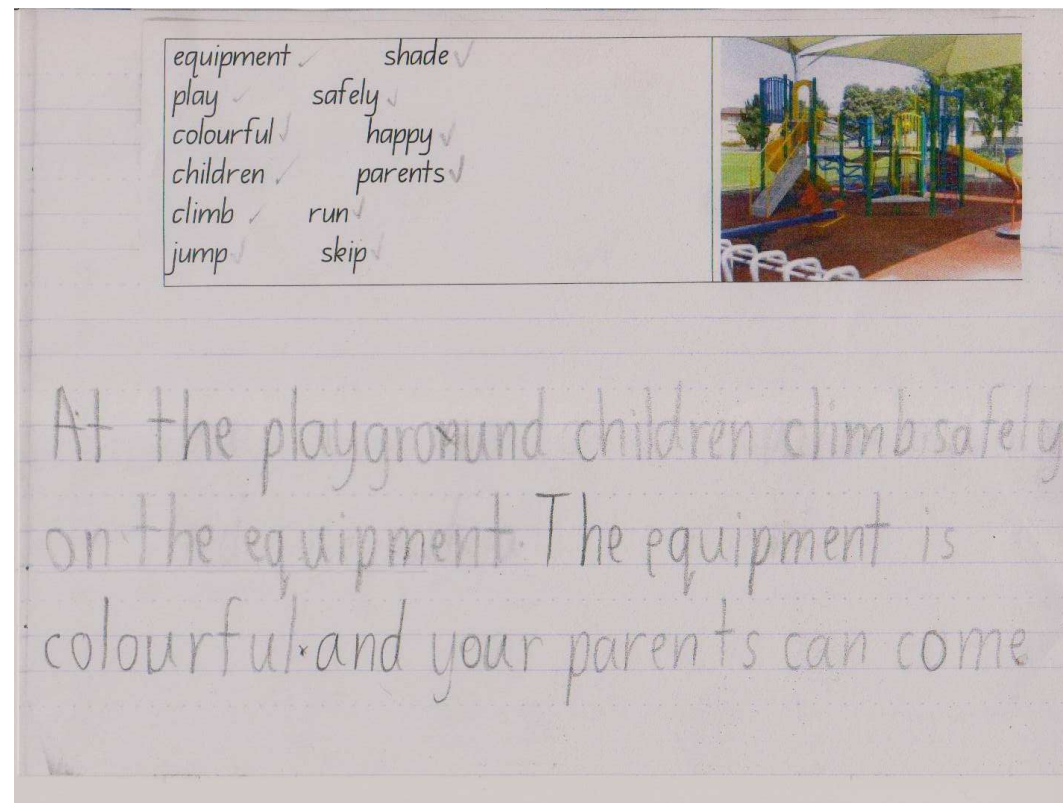 equipment ✓ shade ✓
play ✓ safely ✓
colourful ✓ happy ✓
children ✓ parents ✓
climb ✓ run ✓
jump ✓ skip ✓
At the playground children climb safely
on the equipment. The equipment is
colourful and your parents can come